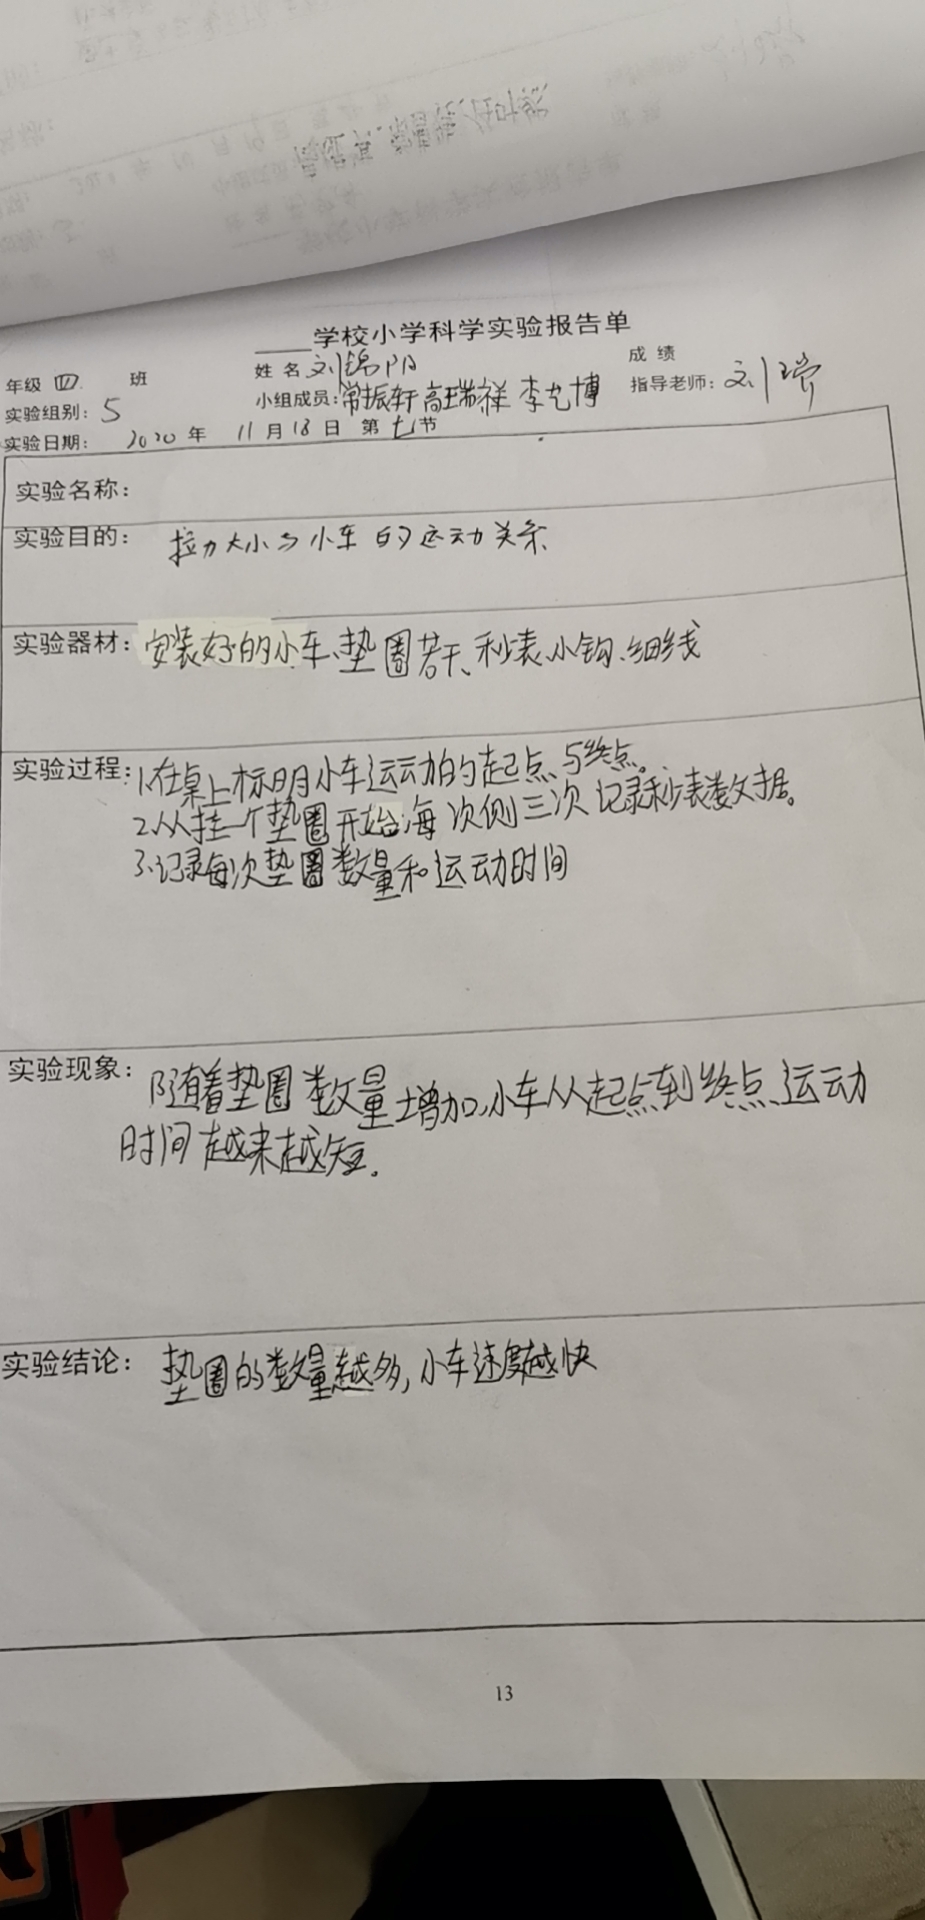 学校小学科学实验报告单
年级 四 班 姓名 刘锦阳 成绩
实验组别：5 小组成员：常振轩 高瑞祥 李艺博 指导老师：刘
实验日期：2020年 11月18日 第七节
实验名称：
实验目的： 拉力大小与小车的运动关系
实验器材：安装好的小车、垫圈若干、秒表、小钩、细线
实验过程：1.在桌上标明小车运动的起点与终点。
2.从挂一个垫圈开始，每次侧三次记录秒表数据。
3.记录每次垫圈数量和运动时间
实验现象：随着垫圈数量增加，小车从起点到终点运动
时间越来越短。
实验结论：垫圈的数量越多，小车速度越快
13